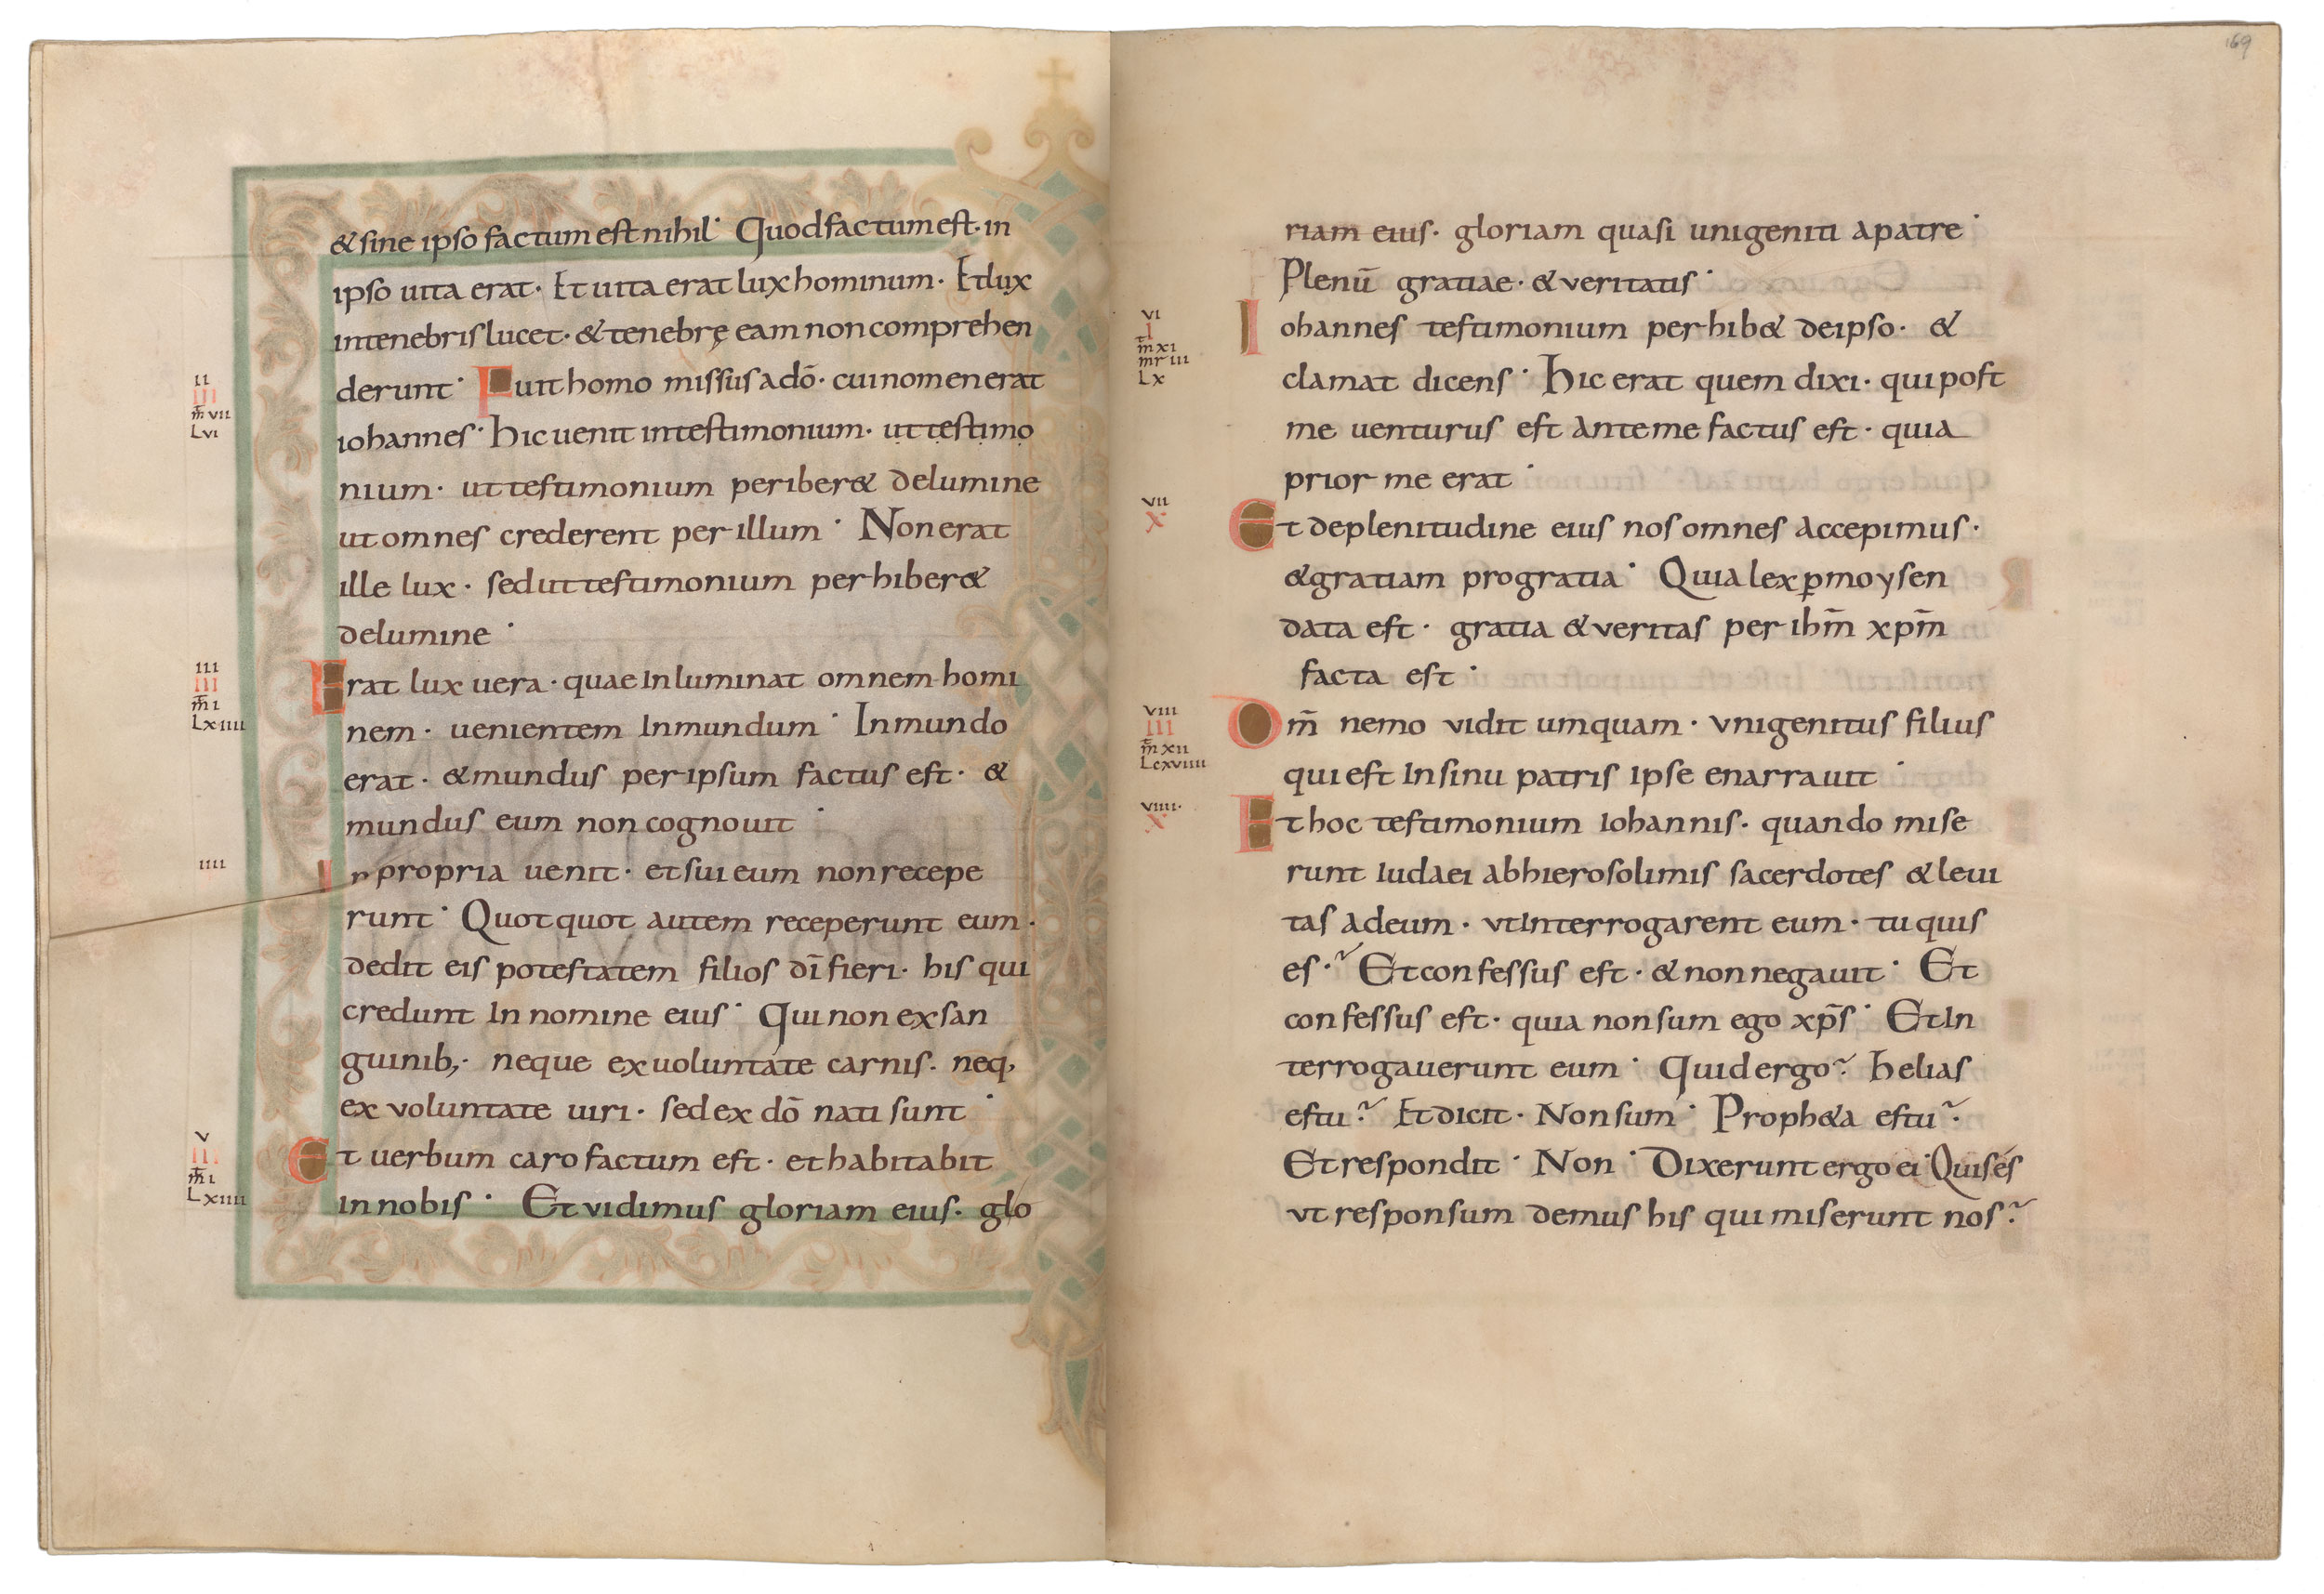 & sine ipso factum est nihil· Quod factum est· in
ipso uita erat· Et uita erat lux hominum· Et lux
in tenebris lucet· & tenebrę eam non comprehen
II
III
m̄ VII
L VI
derunt· Fuit homo missus a dō· cui nomen erat
iohannes· hic uenit in testimonium· ut testimo
nium· ut testimonium periber& de lumine
ut omnes crederent per illum· Non erat
ille lux· sed ut testimonium perhiber&
de lumine·
III
III
m̄ I
L XIIII
Erat lux uera· quae inluminat omnem homi
nem· uenientem in mundum· In mundo
erat· & mundus per ipsum factus est· &
mundus eum non cognouit·
IIII
In propria uenit· et sui eum non recepe
runt· Quotquot autem receperunt eum·
dedit eis potestatem filios dī fieri· his qui
credunt in nomine eius· Qui non ex san
guinib;· neque ex uoluntate carnis· neq;
ex voluntate uiri· sed ex dō nati sunt·
V
III
m̄ I
L XIIII
Et uerbum caro factum est· et habitabit
in nobis· Et vidimus gloriam eius· glo
169
riam eius· gloriam quasi unigeniti a patre·
Plenū gratiae· & veritatis·
VI
I
m̄ XI
mr III
L X
Iohannes testimonium perhib& de ipso· &
clamat dicens· hic erat quem dixi· qui post
me uenturus est ante me factus est· quia
prior me erat·
VII
X
Et de plenitudine eius nos omnes accepimus·
& gratiam pro gratia· Quia lex ꝑ moysen
data est· gratia & veritas per ihm̄ xpm̄
facta est·
VIII
III
m̄ XII
L cxviiii
Dm̄ nemo vidit umquam· vnigenitus filius
qui est in sinu patris ipse enarrauit·
VIIII·
X
Et hoc testimonium iohannis· quando mise
runt iudaei ab hierosolimis sacerdotes & leui
tas ad eum· vt interrogarent eum· tu quis
es·? Et confessus est· & non negauit· Et
confessus est· quia non sum ego xp̄s· Et in
terrogauerunt eum· Quid ergo? helias
es tu? Et dicit· Non sum· Proph&a es tu?
Et respondit· Non· Dixerunt ergo ei· Quis és
vt responsum demus his qui miserunt nos?